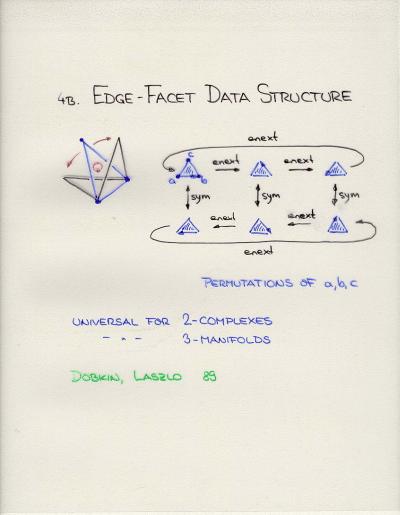 4B. EDGE-FACET DATA STRUCTURE
enext
c
enext
enext
a
b
sym
sym
sym
enext
enext
enext
PERMUTATIONS OF a,b,c
UNIVERSAL FOR 2-COMPLEXES
- " - 3-MANIFOLDS
DOBKIN, LASZLO 89